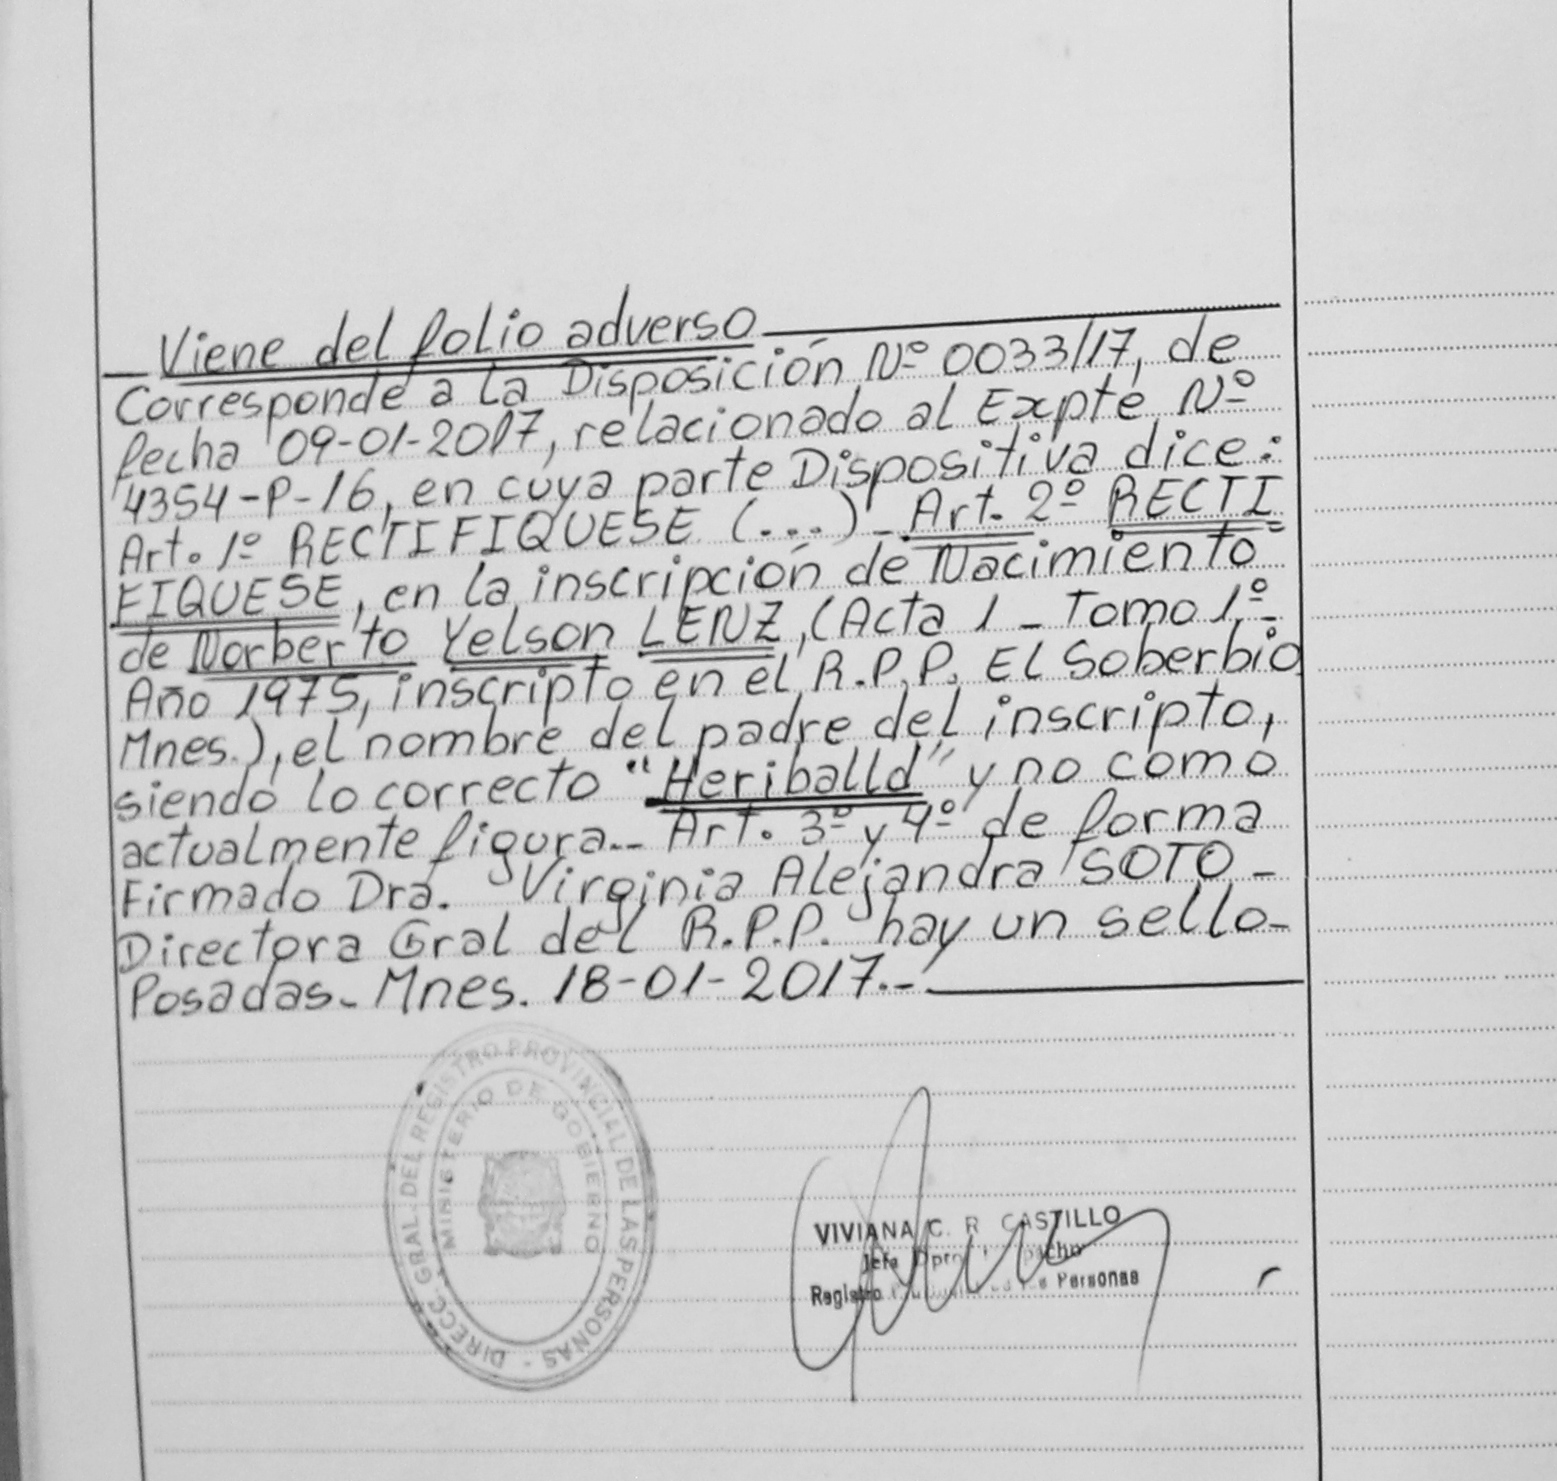 Viene del folio adverso
Corresponde a la Disposición Nº 0033/17, de
fecha 09-01-2017, relacionado al Expte Nº
4354-P-16, en cuya parte Dispositiva dice:
Art. 1º RECTIFIQUESE (...)- Art. 2º RECTI
FIQUESE, en la inscripción de Nacimiento
de Norberto Yelson LENZ, (Acta 1 - Tomo 1º-
Año 1975, inscripto en el R.P.P. El Soberbio
Mnes.), el nombre del padre del inscripto,
siendo lo correcto "Heriballd" y no como
actualmente figura.- Art. 3º y 4º de forma
Firmado Dra. Virginia Alejandra SOTO -
Directora Gral del R.P.P. hay un sello-
Posadas- Mnes. 18-01-2017.-
DIRECC. GRAL. DEL REGISTRO PROVINCIAL DE LAS PERSONAS -
MINISTERIO DE GOBIERNO
VIVIANA C. R. CASTILLO
Jefa Dpto.
Registro Personas